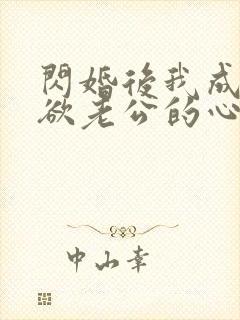 閃婚後我成
欲老公的心
中山幸